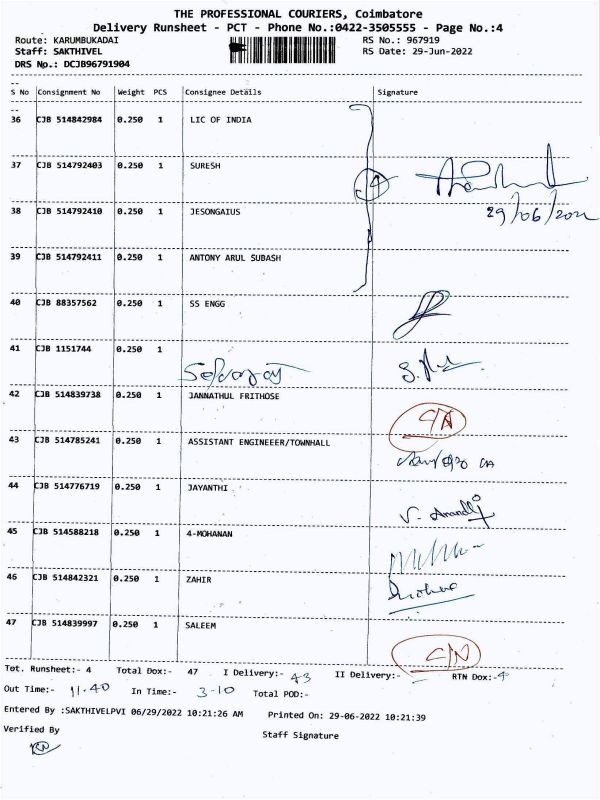 THE PROFESSIONAL COURIERS, Coimbatore
Delivery Runsheet - PCT - Phone No.:0422-3505555 - Page No.:4
Route: KARUMBUKADAI RS No.: 967919
Staff: SAKTHIVEL RS Date: 29-Jun-2022
DRS No.: DCJB96791904
S No Consignment No Weight PCS Consignee Details Signature
36 CJB 514842984 0.250 1 LIC OF INDIA
37 CJB 514792403 0.250 1 SURESH
38 CJB 514792410 0.250 1 JESONGAIUS
29/06/2022
39 CJB 514792411 0.250 1 ANTONY ARUL SUBASH
40 CJB 88357562 0.250 1 SS ENGG
41 CJB 1151744 0.250 1
42 CJB 514839738 0.250 1 JANNATHUL FRITHOSE
43 CJB 514785241 0.250 1 ASSISTANT ENGINEEER/TOWNHALL
44 CJB 514776719 0.250 1 JAYANTHI
45 CJB 514588218 0.250 1 4-MOHANAN
46 CJB 514842321 0.250 1 ZAHIR
47 CJB 514839997 0.250 1 SALEEM
Tot. Runsheet:- 4 Total Dox:- 47 I Delivery:- 43 II Delivery:- - RTN Dox:- 4
Out Time:- 11.40 In Time:- 3-10 Total POD:-
Entered By :SAKTHIVELPVI 06/29/2022 10:21:26 AM Printed On: 29-06-2022 10:21:39
Verified By Staff Signature